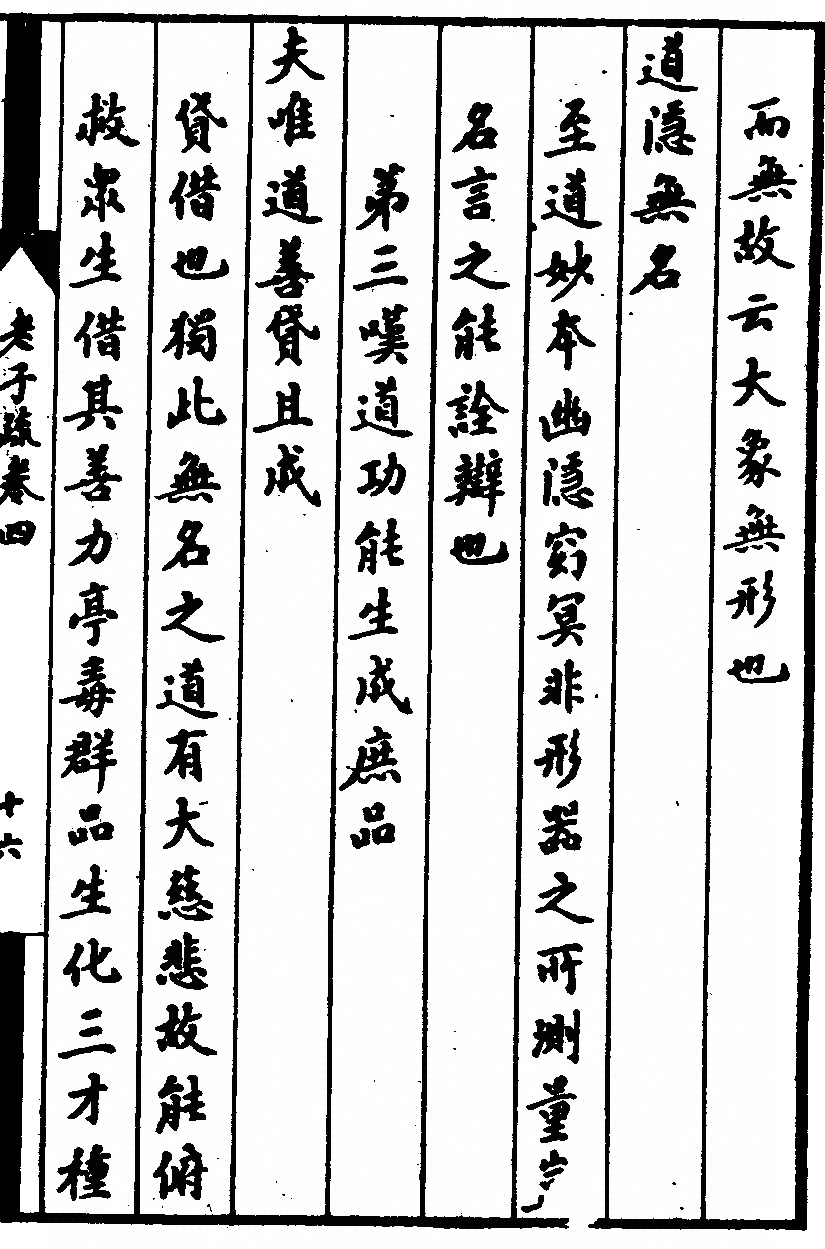 而無故云大象無形也
道隱無名
至道妙本幽隱窈冥非形器之所測量豈
名言之能詮辯也
第三嘆道功能生成庶品
夫唯道善貸且成
貸借也獨此無名之道有大慈悲故能俯
救眾生借其善力亭毒群品生化三才種
老子疏卷四
十六